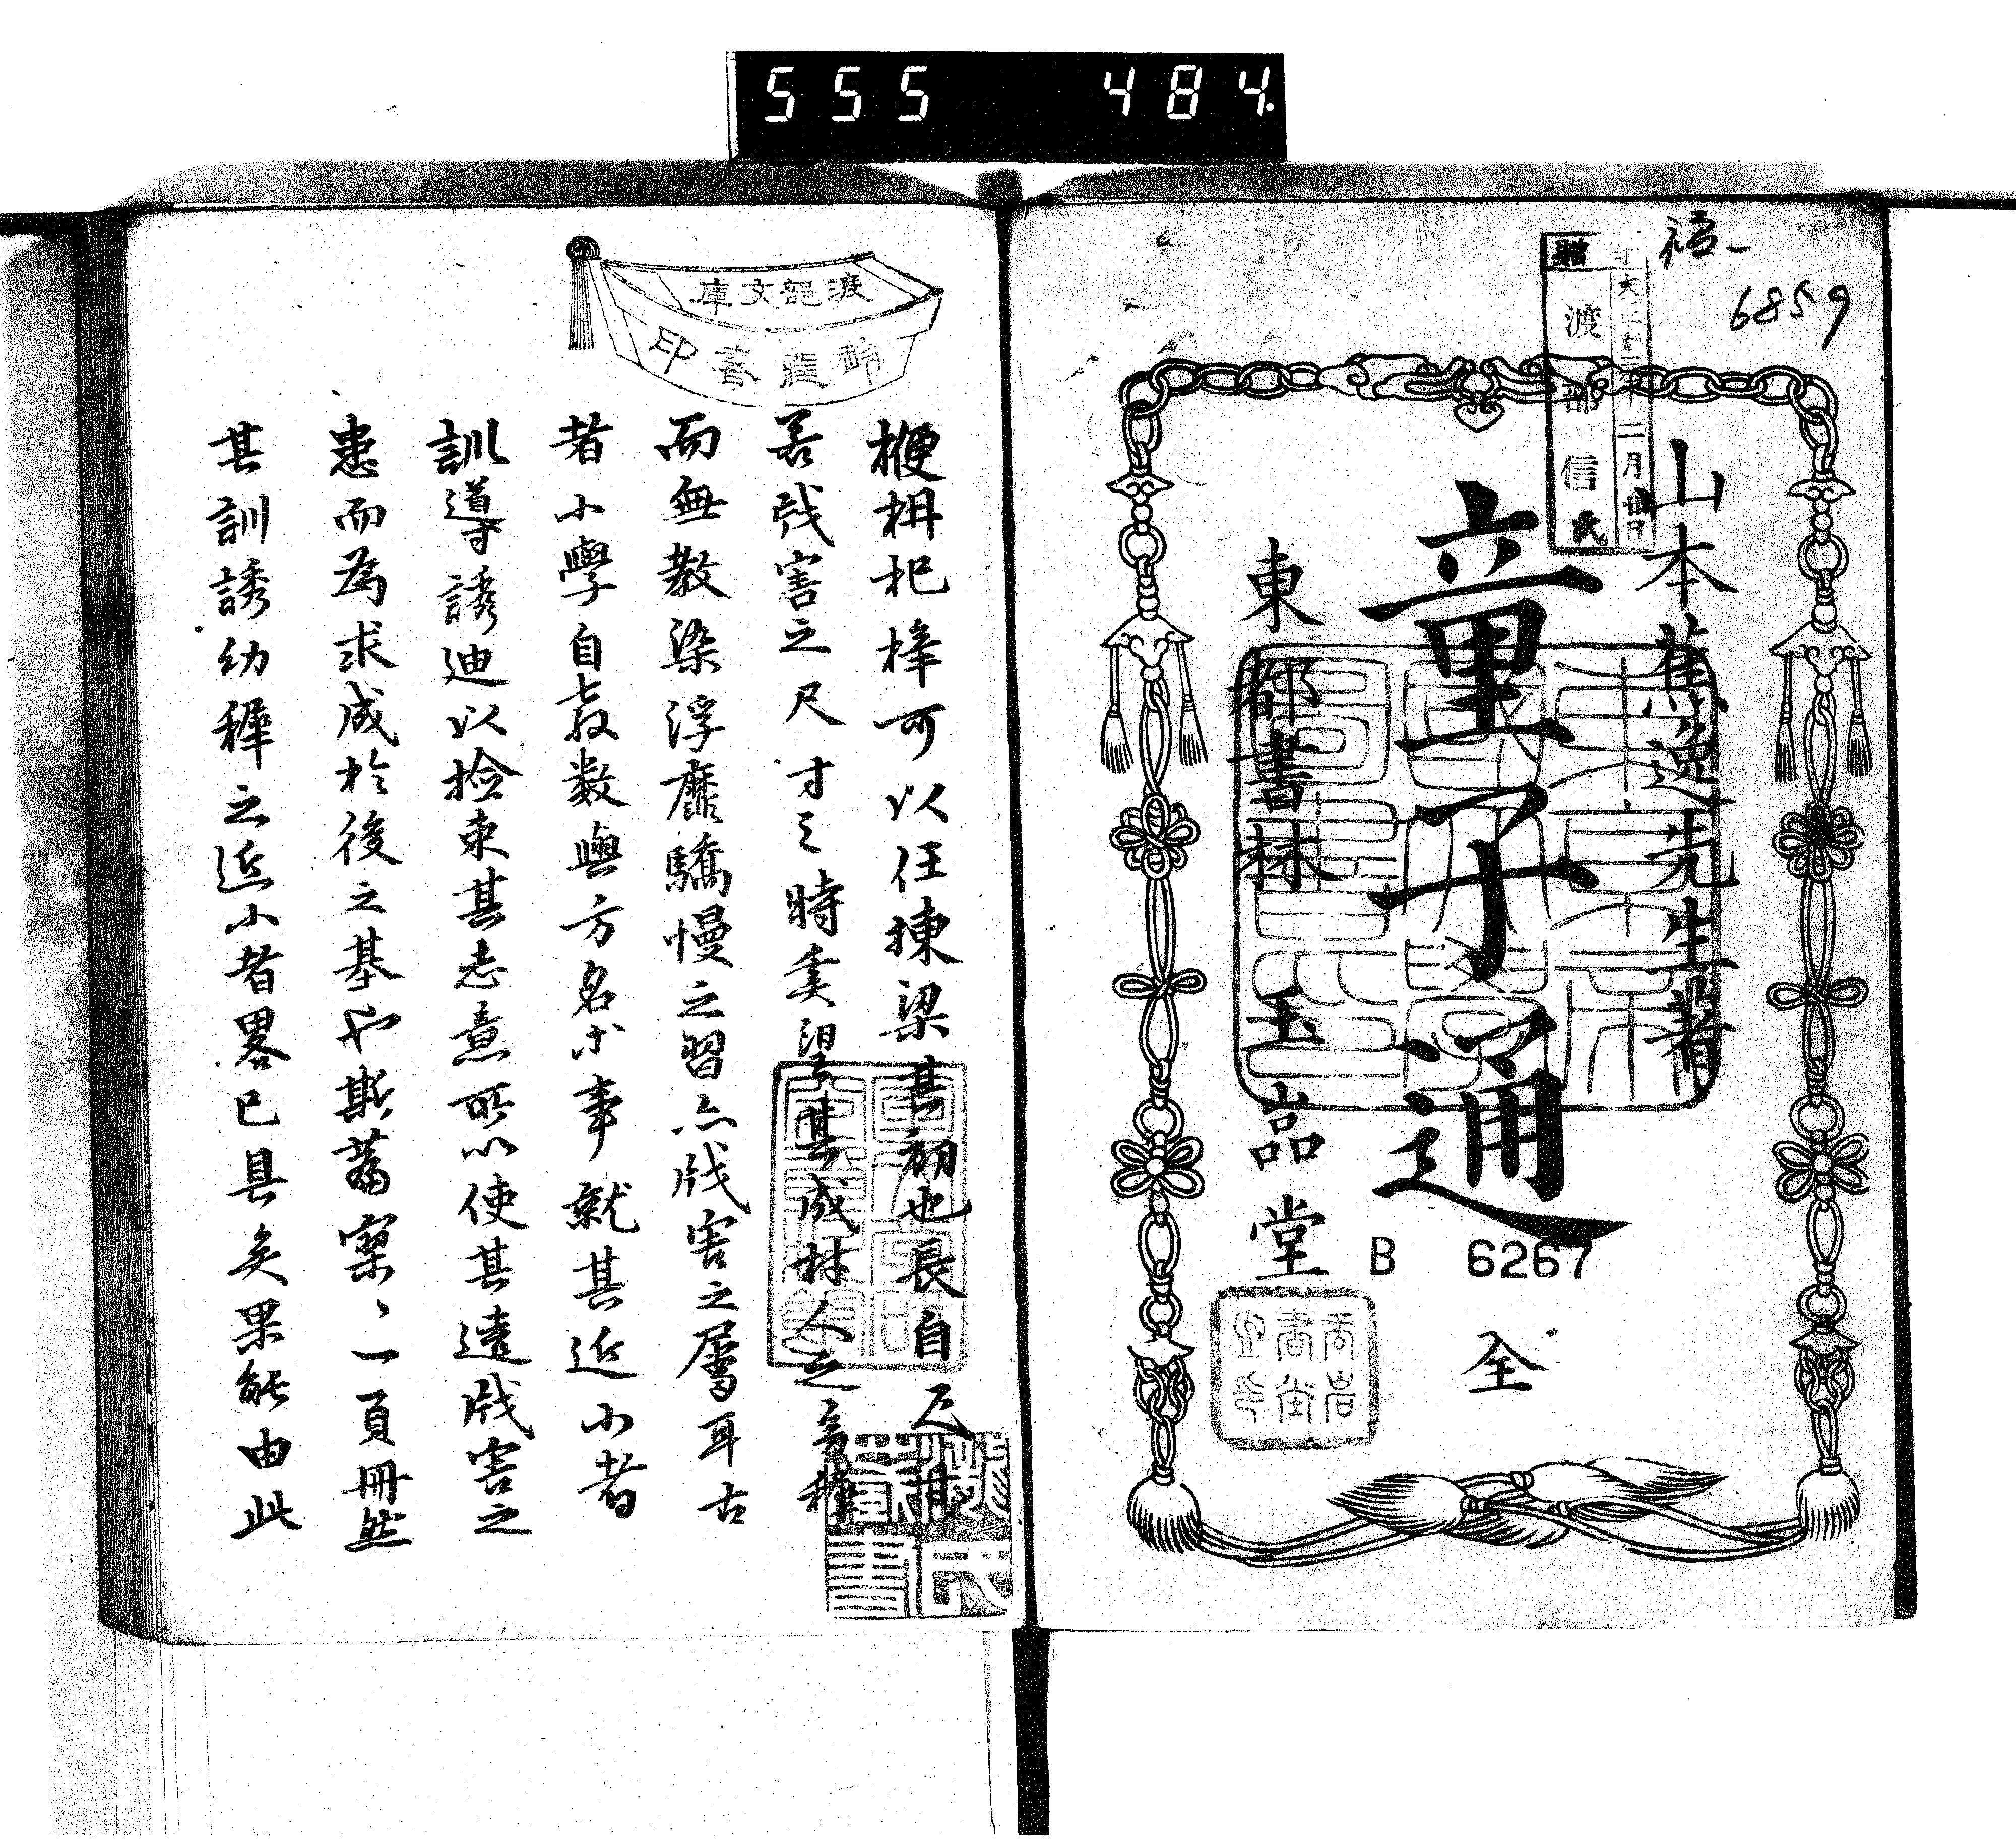 555 484.
禧一
6859
贈
渡部信氏
山本蕉逸先生著
童子通
東都書林 玉嵓堂
B 6267
全
渡部文庫
印
楩枏杞梓可以任棟梁其初也長自尺寸
若戕害之尺寸之時奚望其成材人之
而無教染浮靡驕慢之習亦戕害之屬耳古
者小學自教数與方名小事就其近小者
訓導誘迪以撿束其志意所以使其遠戕害之
患而為求成於後之基也斯蓋寥〻一頁冊然
其訓誘幼穉之近小者畧已具矣果能由此